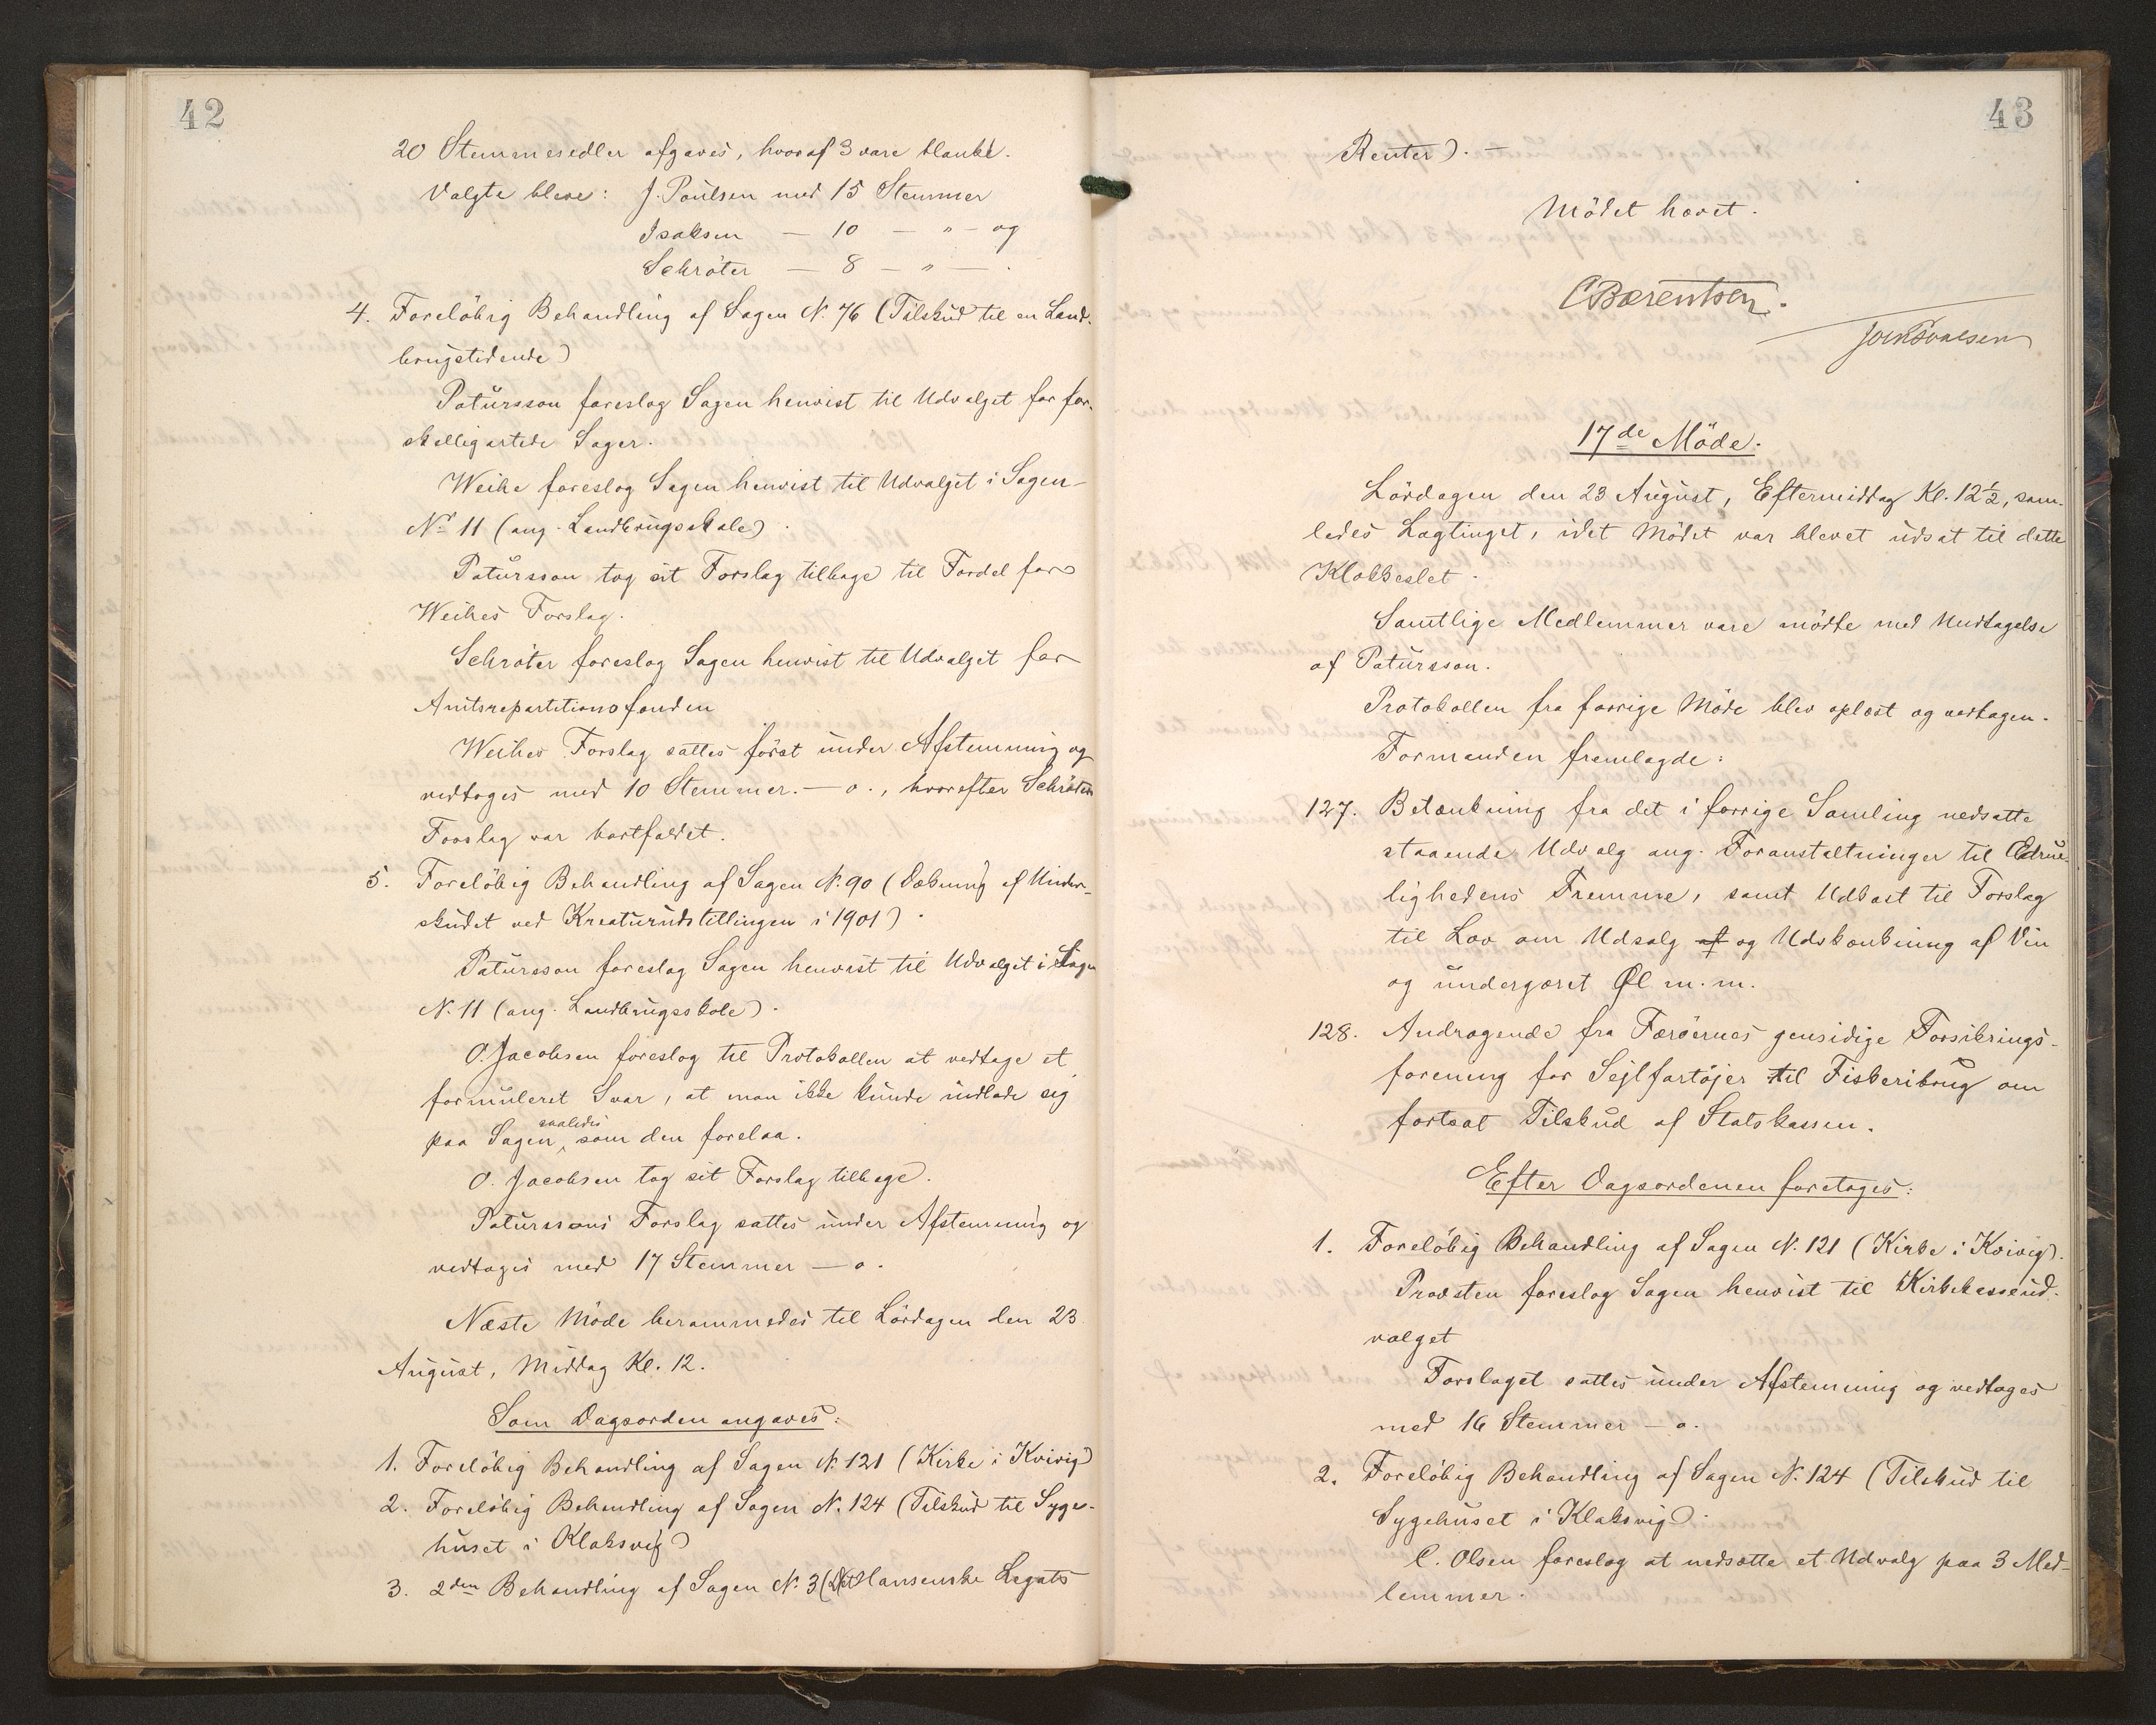 42
20 Stemmesedler afgaves, hvoraf 3 vare blanke.
Valgte bleve: J. Poulsen med 15 Stemmer
Isaksen — 10 — " — og
Schröter — 8 — " — .
4. Foreløbig Behandling af Sagen N. 76 (Tilskud til en Land-
brugstidende)
Patursson foreslog Sagen henvist til Udvalget for for-
skelligartede Sager.
Weihe foreslog Sagen henvist til Udvalget i Sagen
No 11 (ang. Landbrugsskole).
Patursson tog sit Forslag tilbage til Fordel for
Weihes Forslag.
Schröter foreslog Sagen henvist til Udvalget for
Amtsrepartitionsfonden
Weihes Forslag sattes först under Afstemning og
vedtoges med 10 Stemmer. — o., hvorefter Schröters
Forslag var bortfaldet.
5. Foreløbig Behandling af Sagen N. 90 (Dækning af Under-
skudet ved Kreaturudstillingen i 1901).
Patursson foreslog Sagen henvist til Udvalget i Sagen
N. 11 (ang. Landbrugsskole).
O. Jacobsen foreslog til Protokollen at vedtage et
formuleret Svar, at man ikke kunde indlade sig
paa Sagen saaledes som den forelaa.
O. Jacobsen tog sit Forslag tilbage.
Paturssons Forslag sattes under Afstemning og
vedtoges med 17 Stemmer — o.
Næste Möde berammedes til Lördagen den 23
August, Middag Kl. 12.
Som Dagsorden angaves:
1. Forelöbig Behandling af Sagen N. 121 (Kirke i Kvivig)
2. Forelöbig Behandling af Sagen N. 124 (Tilskud til Syge-
huset i Klaksvig)
3. 2den Behandling af Sagen N. 3 (Det Hansenske Legats
43
Renter). —
Mödet hævet.
CBærentsen.
Joen Poulsen
17de Möde.
Lördagen den 23 August, Eftermiddag Kl. 12½, sam-
ledes Lagtinget, idet Mödet var blevet udsat til dette
Klokkeslet.
Samtlige Medlemmer vare mödte med Undtagelse
af Patursson.
Protokollen fra forrige Möde blev oplæst og vedtagen.
Formanden fremlagde:
127. Betænkning fra det i forrige Samling nedsatte
staaende Udvalg ang. Foranstaltninger til Ædrue-
lighedens Fremme, samt Udkast til Forslag
til Lov om Udsalg af og Udskænkning af Vin
og undergæret Øl m.m.
128. Andragende fra Færöernes gensidige Forsikrings-
forening for Sejlfartöjer til Fiskeribrug om
fortsat Tilskud af Statskassen.
Efter Dagsordenen foretoges:
1. Forelöbig Behandling af Sagen N. 121 (Kirke i Kvivig).
Provsten foreslog Sagen henvist til Kirkekasseud-
valget
Forslaget sattes under Afstemning og vedtoges
med 16 Stemmer — o.
2. Forelöbig Behandling af Sagen N. 124 (Tilskud til
Sygehuset i Klaksvig).
C. Olsen foreslog at nedsætte et Udvalg paa 3 Med-
lemmer.